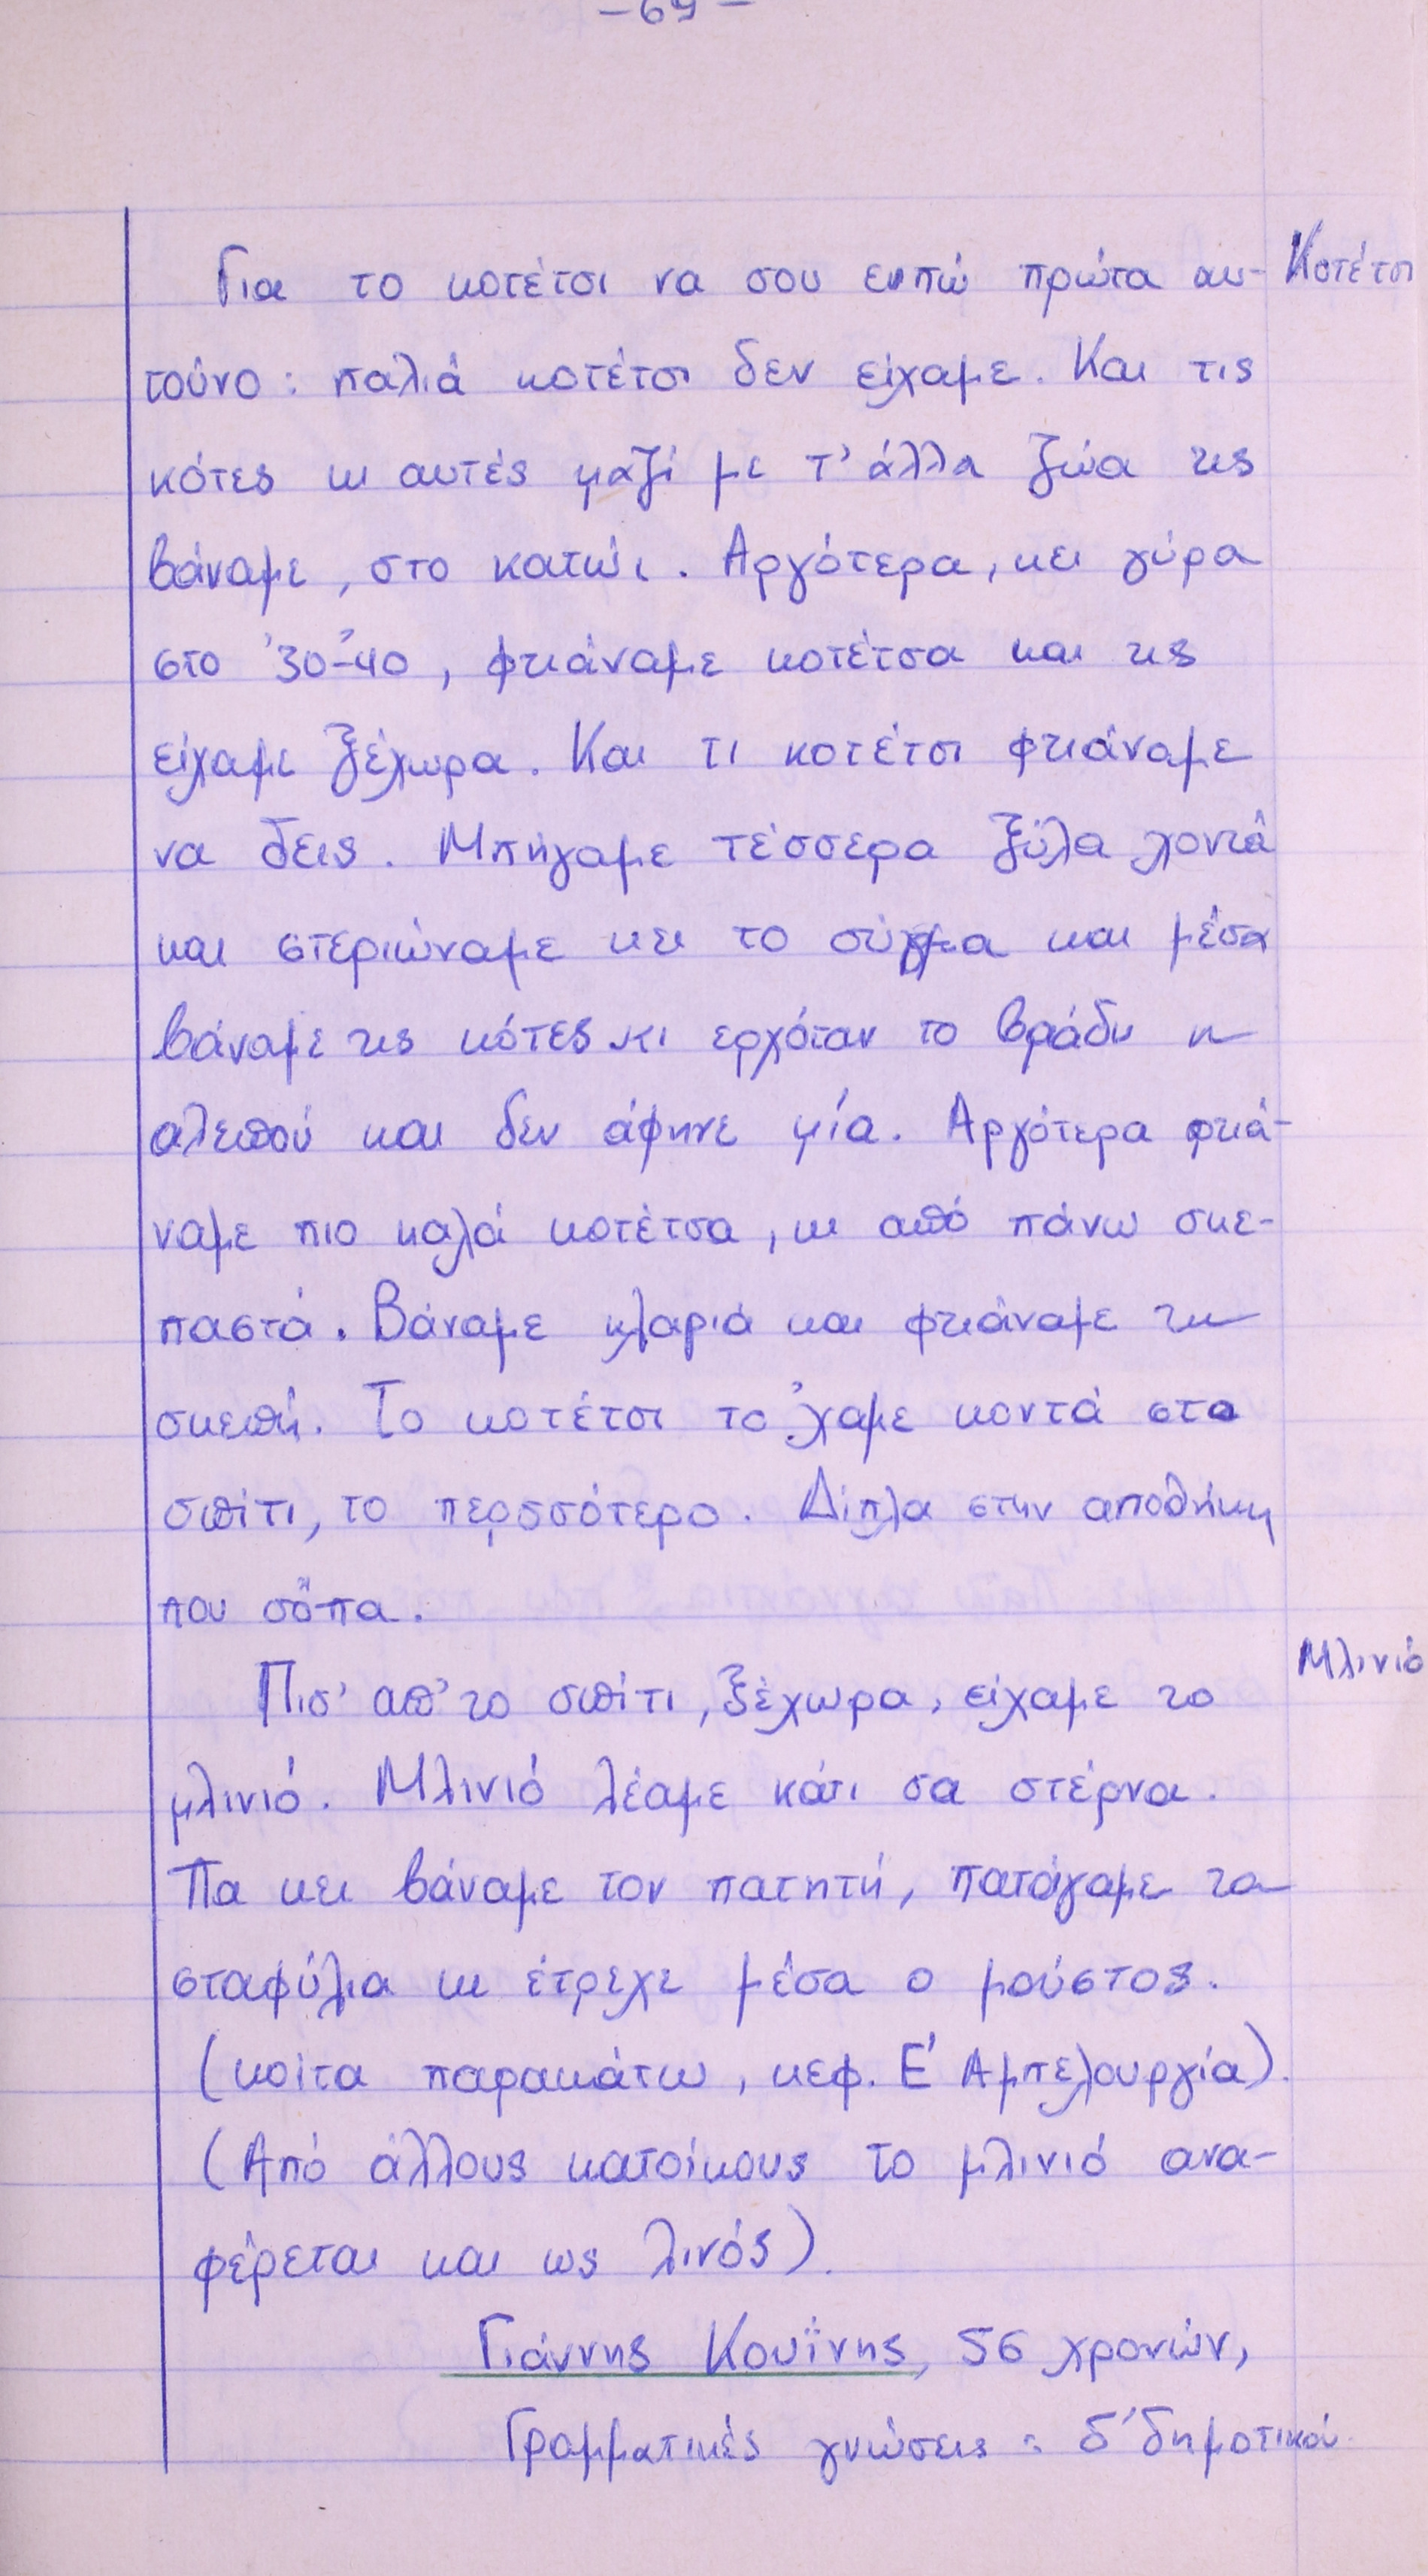 -69-
Για το κοτέτσι να σου ειπώ πρώτα αυ-
Κοτέτσι
τούνο: παλιά κοτέτσι δεν είχαμε. Και τις
κότες κι αυτές μαζί με τ' άλλα ζώα τις
βάναμε, στο κατώι. Αργότερα, κει γύρα
στο '30-'40, φτιάναμε κοτέτσα και τις
είχαμε ξέχωρα. Και τι κοτέτσι φτιάναμε
να δεις. Μπήγαμε τέσσερα ξύλα χοντά
και στεριώναμε κει το σύρμα και μέσα
βάναμε τις κότες κι ερχόταν το βράδυ η
αλεπού και δεν άφηνε μία. Αργότερα φτιά-
ναμε πιο καλά κοτέτσα, κι από πάνω σκε-
παστά. Βάναμε κλαριά και φτιάναμε τη
σκεπή. Το κοτέτσι το 'χαμε κοντά στο
σπίτι, το περσσότερο. Δίπλα στην αποθήκη
που σὄπα.
Πισ' απ' το σπίτι, ξέχωρα, είχαμε το
Μλινιό
μλινιό. Μλινιό λέαμε κάτι σα στέρνα.
Πα κει βάναμε τον πατητή, πατάγαμε τα
σταφύλια κι έτρεχε μέσα ο μούστος.
(κοίτα παρακάτω, κεφ. Ε' Αμπελουργία).
(Από άλλους κατοίκους το μλινιό ανα-
φέρεται και ως λινός).
Γιάννης Κουΐνης, 56 χρονών,
Γραμματικές γνώσεις: δ' δημοτικού.